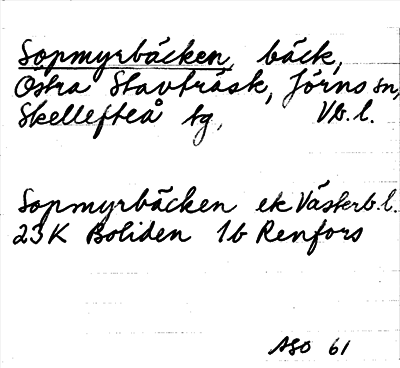 Sopmyrbäcken, bäck,
Östra Stavträsk, Jörns sn,
Skellefteå tg, Vb. l.
Sopmyrbäcken ek Västerb. l.
23K Boliden 1b Renfors
ASO 61